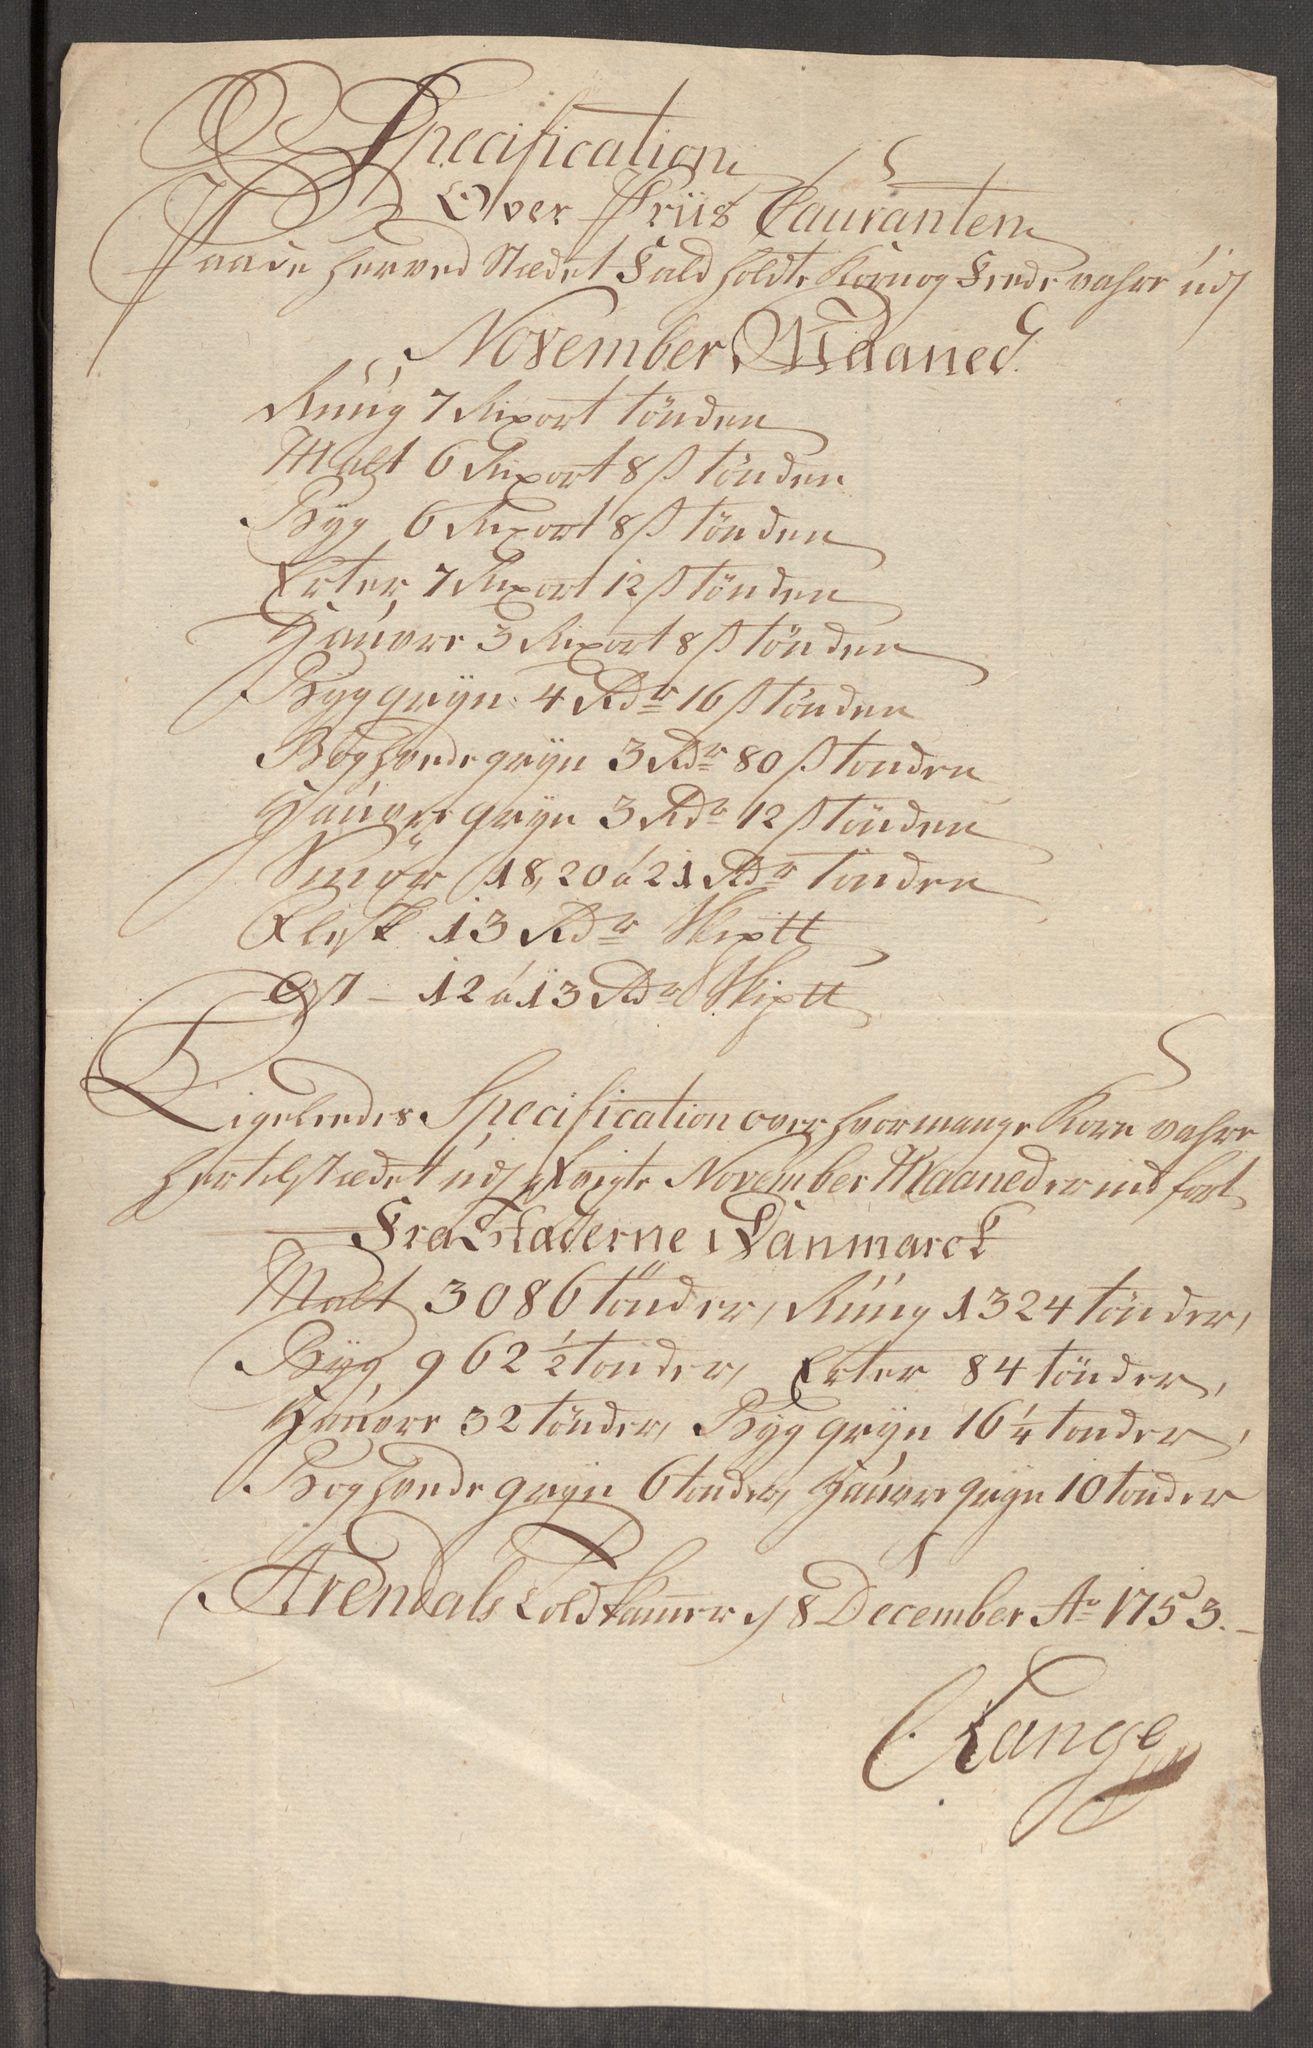 Specification
Over Priis Couranten
Paa de herved Stædet fald holdte Korn og Fede vahre udj
November Maaned
Rúúg 7 Rixort tönden
Malt 6 Rixort 8 ß tönden
Byg 6 Rixort 8 ß tönden
Erter 7 Rixort 12 ß tönden
Haúore 3 Rixort 8 ß tönden
Byg gryn 4 Rdr 16 ß tönden
Boghvede gryn 3 Rdr 80 ß tonden
Haúore gryn 3 Rdr 12 ß tönden
Smör 18, 20 á 21 Rdr tönden
Flesk 13 Rdr Skiptt
Ost – 12 á 13 Rdr Skiptt
Ligeleedes Specification over hvormange Korn vahre
hertil Stædet udj November Maaned er ind fört
Fra Stæderne i Danmarck
Malt 3086 tönder, Rúúg 1324 tönder,
Byg 962 1/2 tonder, Erter 84 tönder,
Haúore 32 tönder, Byg gryn 16 1/4 tonder,
Boghvede gryn 6 tonder, Haúore gryn 10 tonder
Arendals Toldkamer d 8 December Ao 1753.–
Lange